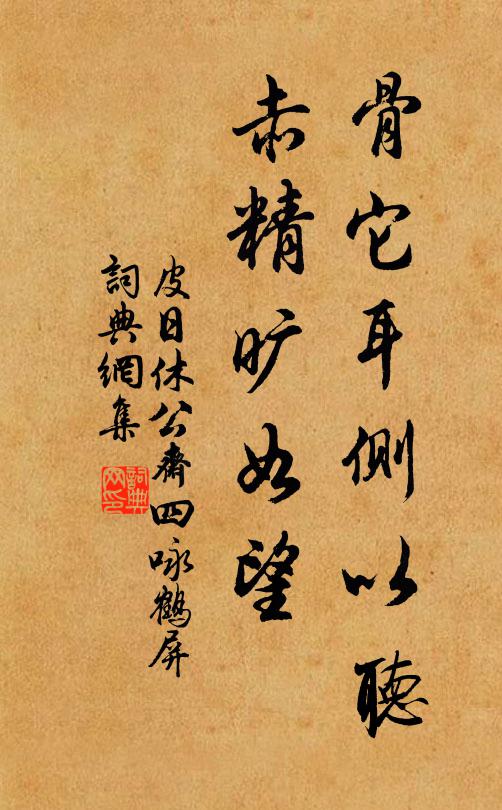 骨它耳側以聽
赤精曠如望
皮日休公齋四咏鶴屏
詞典網集
詞典网印